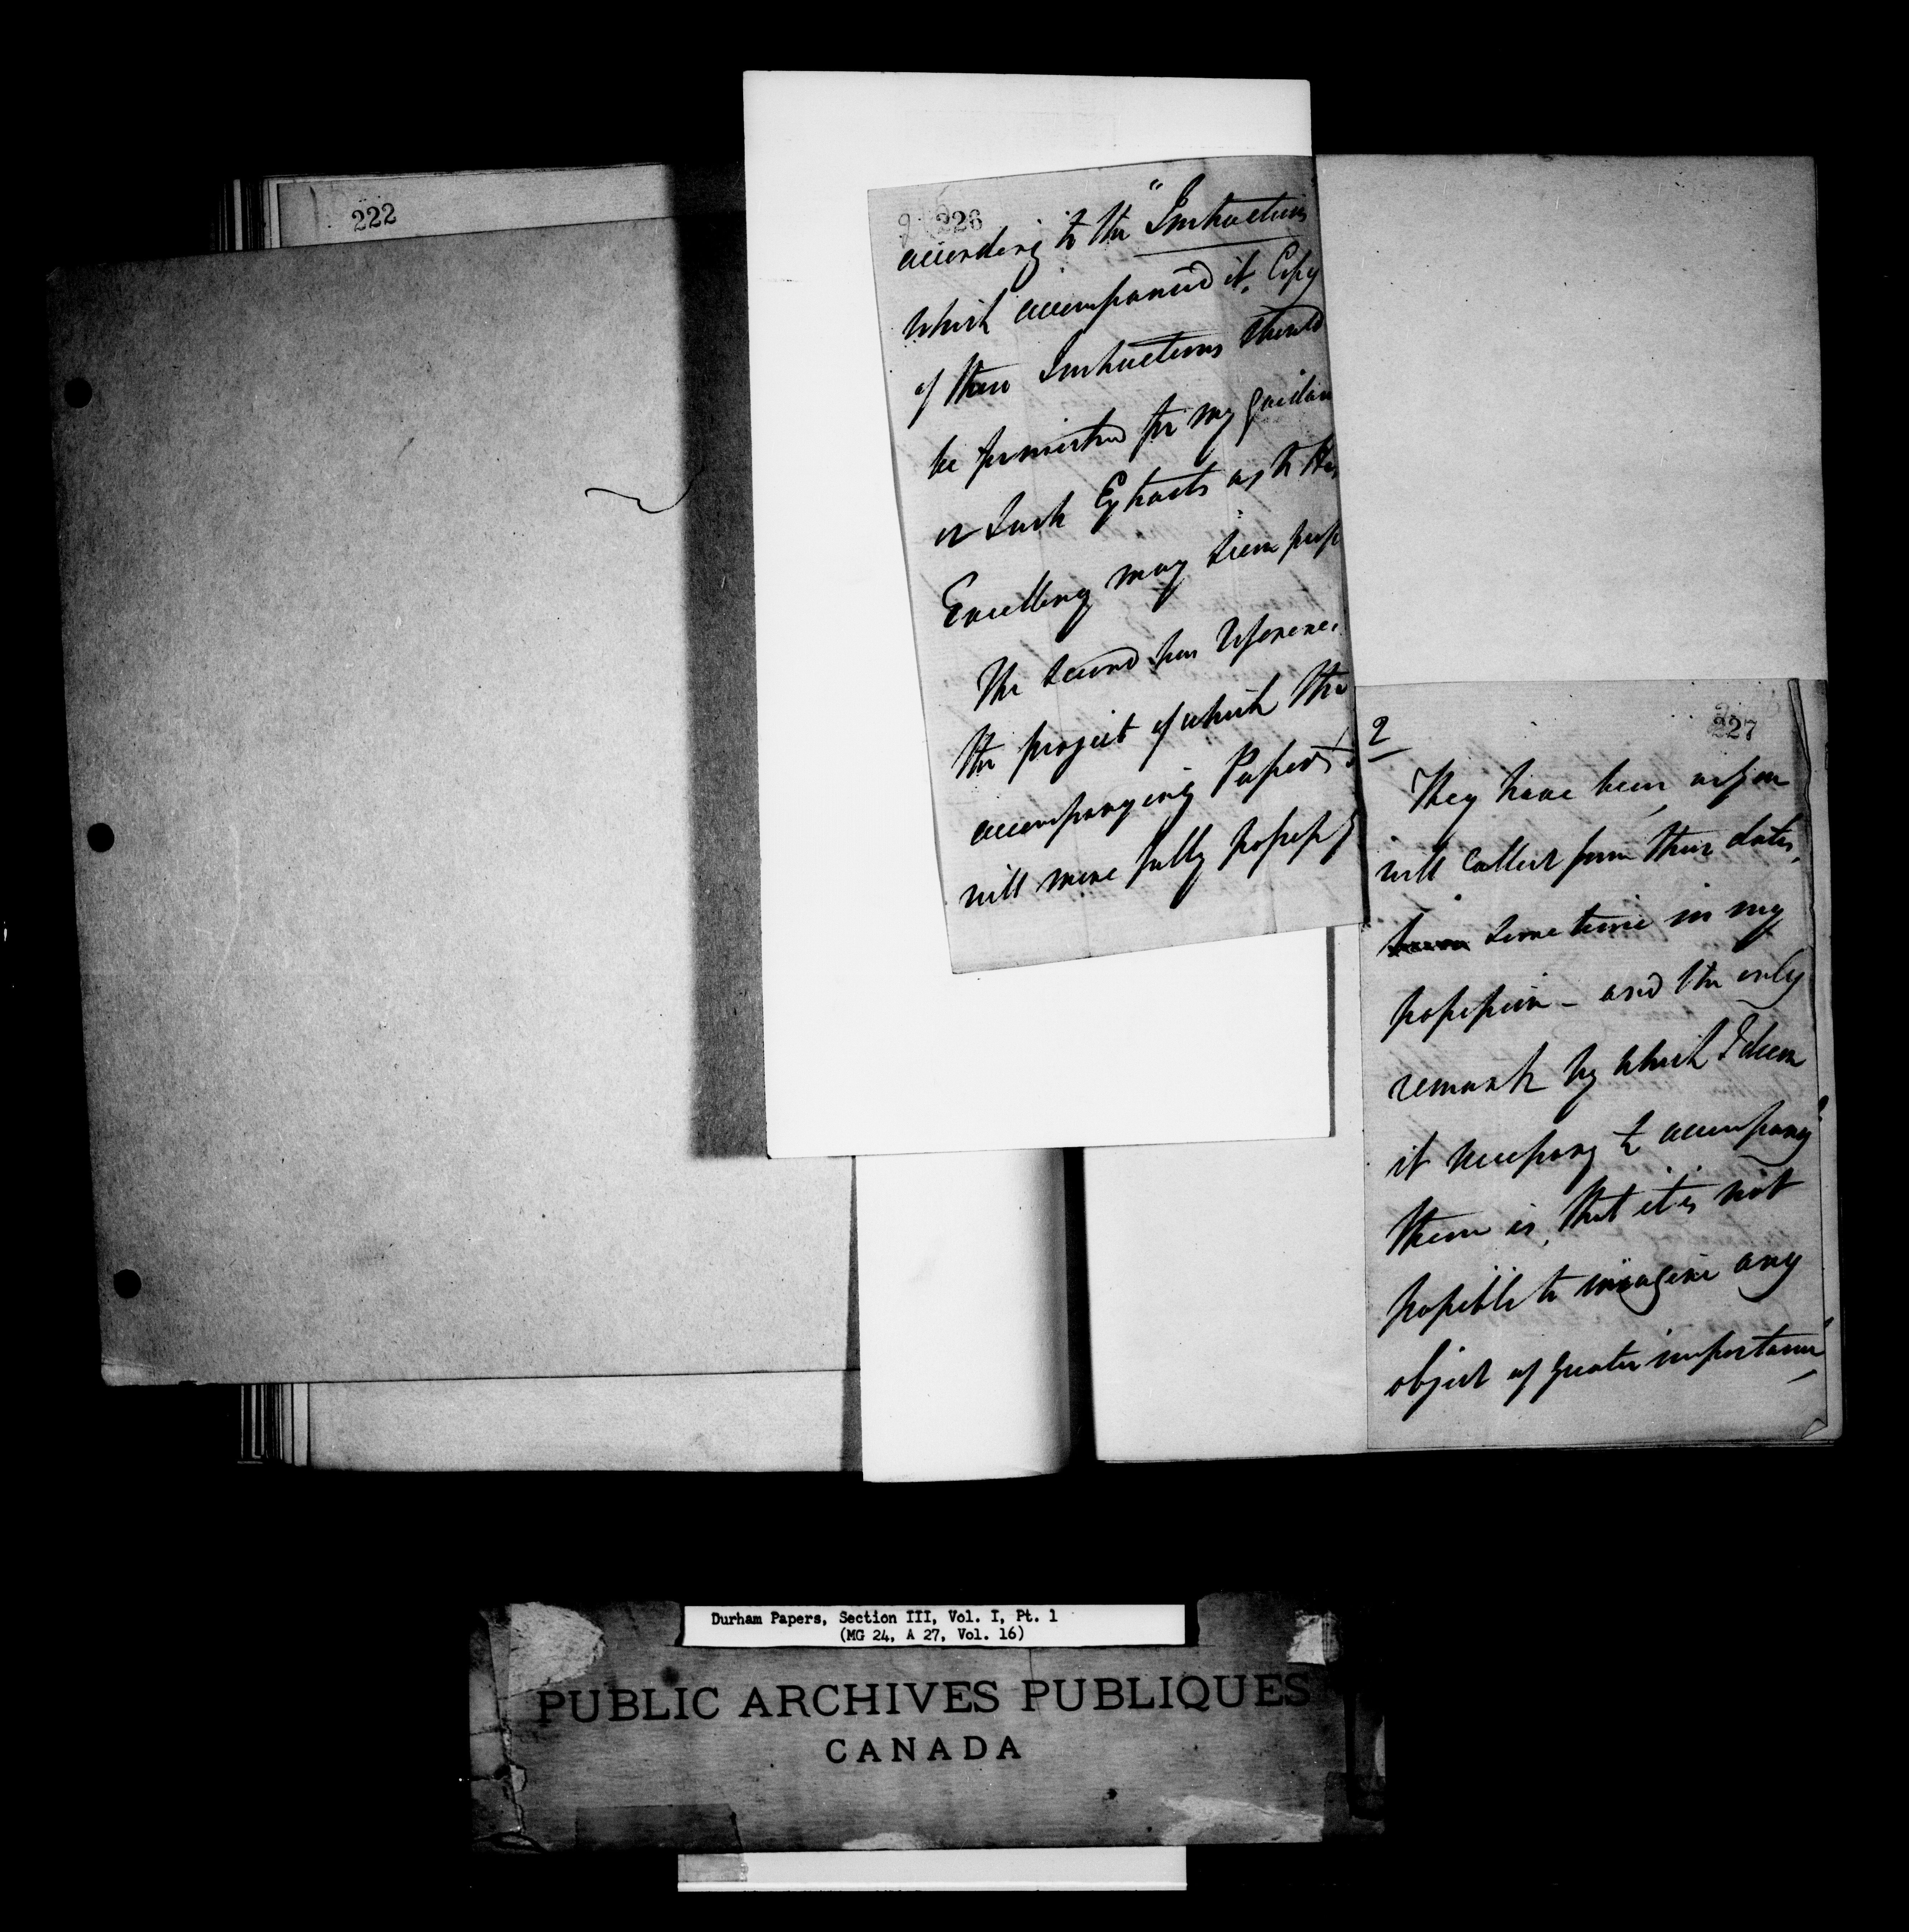 222
226
according to the "Instructions
which accompanied it. Copy
of these Instructions should
be permitted for my guidan
or Such Extracts as to His
Excellency may seem prop
The second has reference
the project of which the
accompanying Papers
will more fully possess
227
2
They have been, as you
will collect from their dates,
some time in my
possession - and the only
remark by which I deem
it necessary to accompany
them is, that it is not
possible to imagine any
object of greater importance,
Durham Papers, Section III, Vol. I, Pt. 1
(MG 24, A 27, Vol. 16)
PUBLIC ARCHIVES PUBLIQUES
CANADA